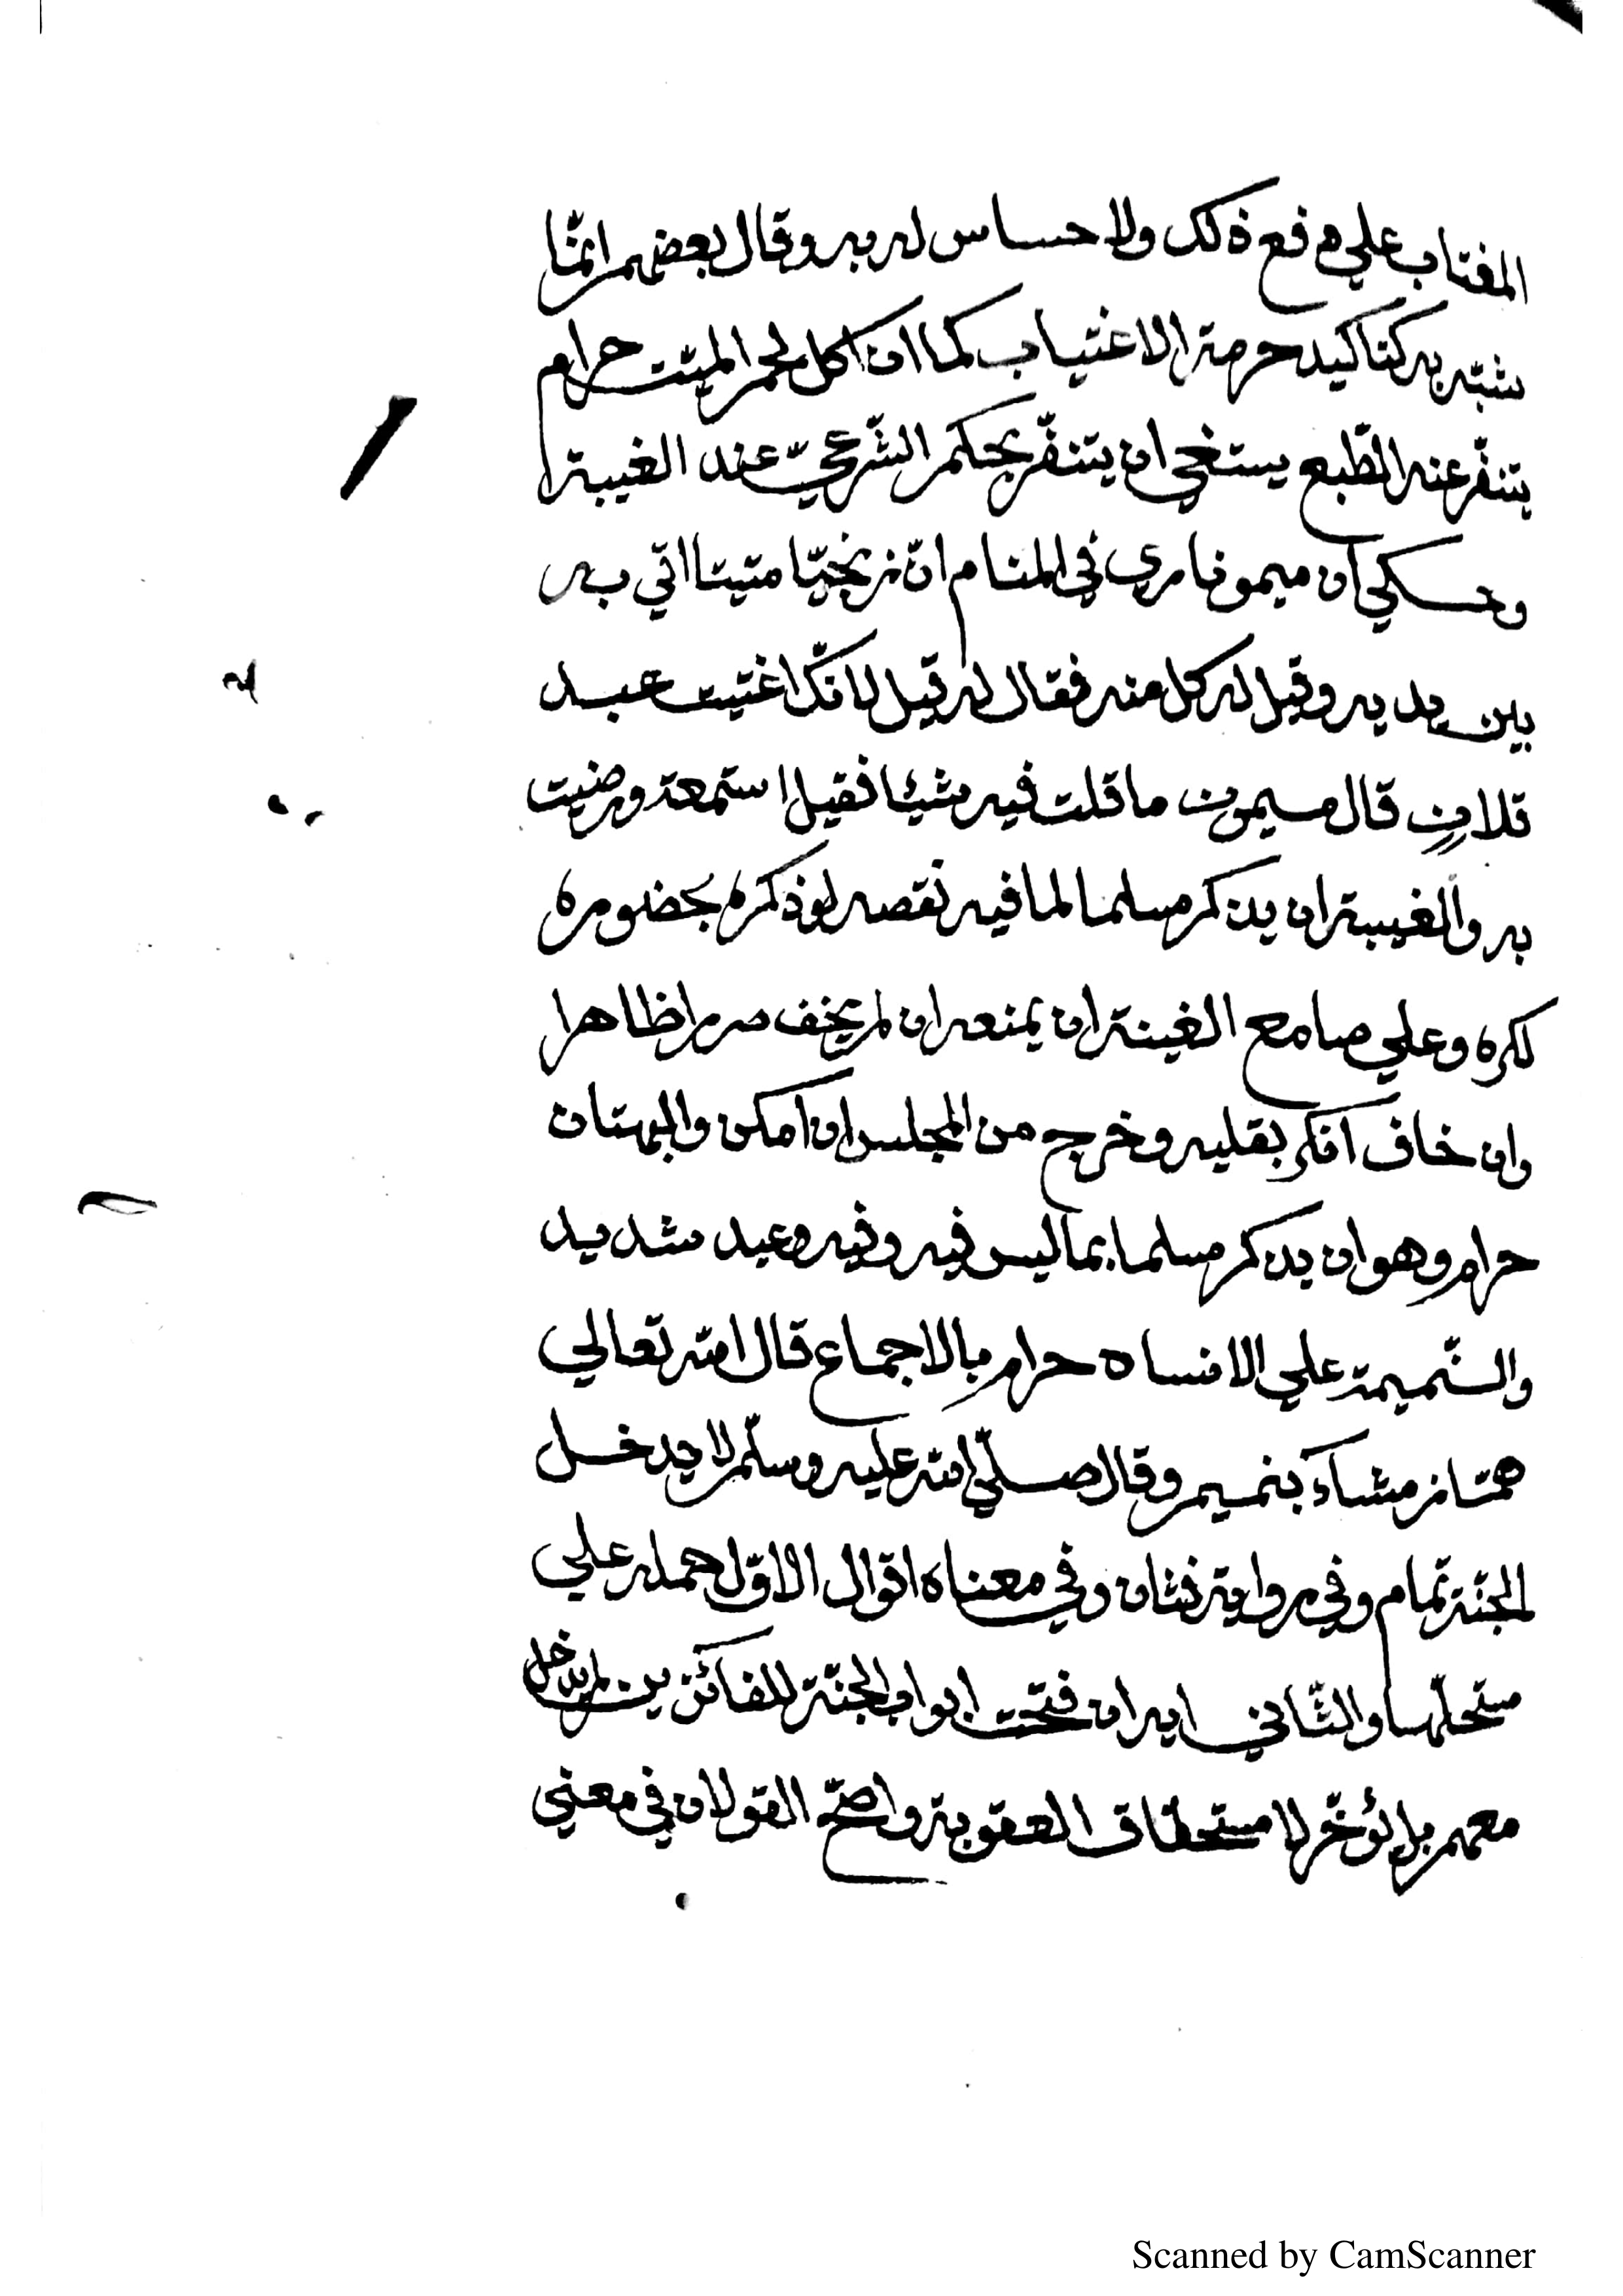 المغتاب علي دفع ذلك ولا حساس له به وقال بعضهم انّما
شبّه به كتاكيد حرمة الاغتياب كما ان اكل لحم الميّت حرام
يتنفّر عنه الطّبع يستغي ان يتنفّر بحكم الشّرعيّ عند الغيبة
وحكي ان ميمونا ري في المنام انّ زنجيّا ميّتا اتي به
بين يديه وقيل له كل منه فقال له قيل لانّك اغتيت عبد
فلان قال ميمون ما قلت فيه شيئا فقيل استمعة ورضيت
به والغيبة ان يذكر مسلما لما فيه نقصه لوذكره بحضوره
لكره وعلي سامع الغيبة ان يمنعه ان لم يخف ضررا ظاهرا
وان خاف انكر بقلبه وخرج من المجلس ان امكن والبهتان
حرام وهو ان يذكر مسلما بما ليس فيه وفيه وعيد شديد
والنّميمة علي الانسان حرام بالاجماع قال الله تعالي
همّاز مشاء بنميم وقال صلّي الله عليه وسلّم لا يدخل
الجنّة نمّام وفي رواية قتّات وفي معناه اقوال الاوّل حمله علي
مستحلّها والثّاني ايه ان فتحت ابواب الجنّة للفائزين لم يدخل
معهم بل يؤخّر لا ستحقاق العقوبة واصحّ القولان في معني
Scanned by CamScanner